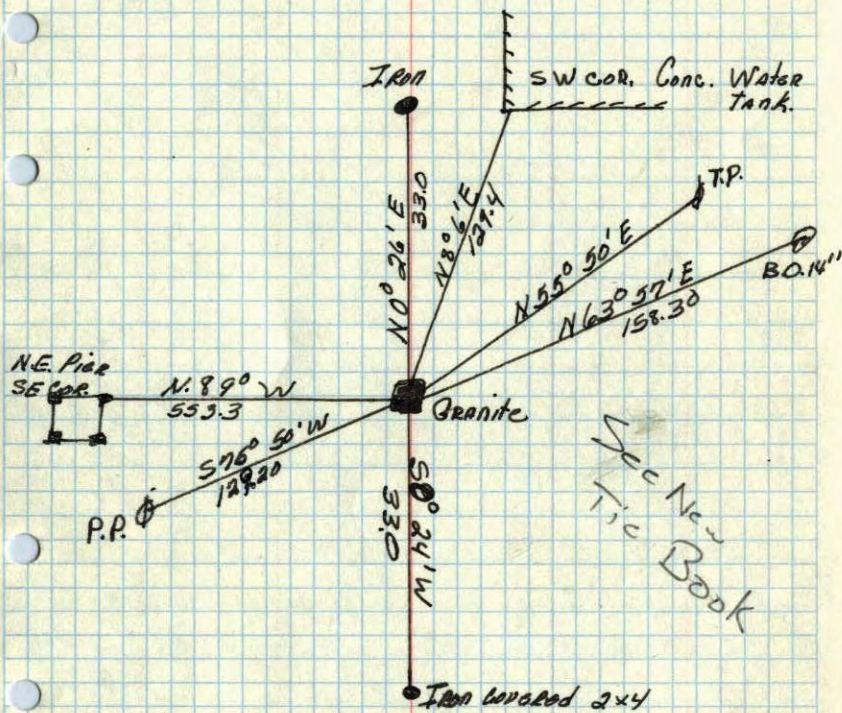 Iron
SW COR. Conc. Water
Tank.
N 0° 26' E
33.0
N 8° 6' E
129.4
T.P.
N 55° 50' E
N 63° 57' E
158.30
B.O. 14"
N.E. Pier
SE COR.
N. 89° W
553.3
Granite
S 76° 50' W
129.20
P.P.
S 0° 24' W
33.0
See New
Tie Book
Iron covered 2x4